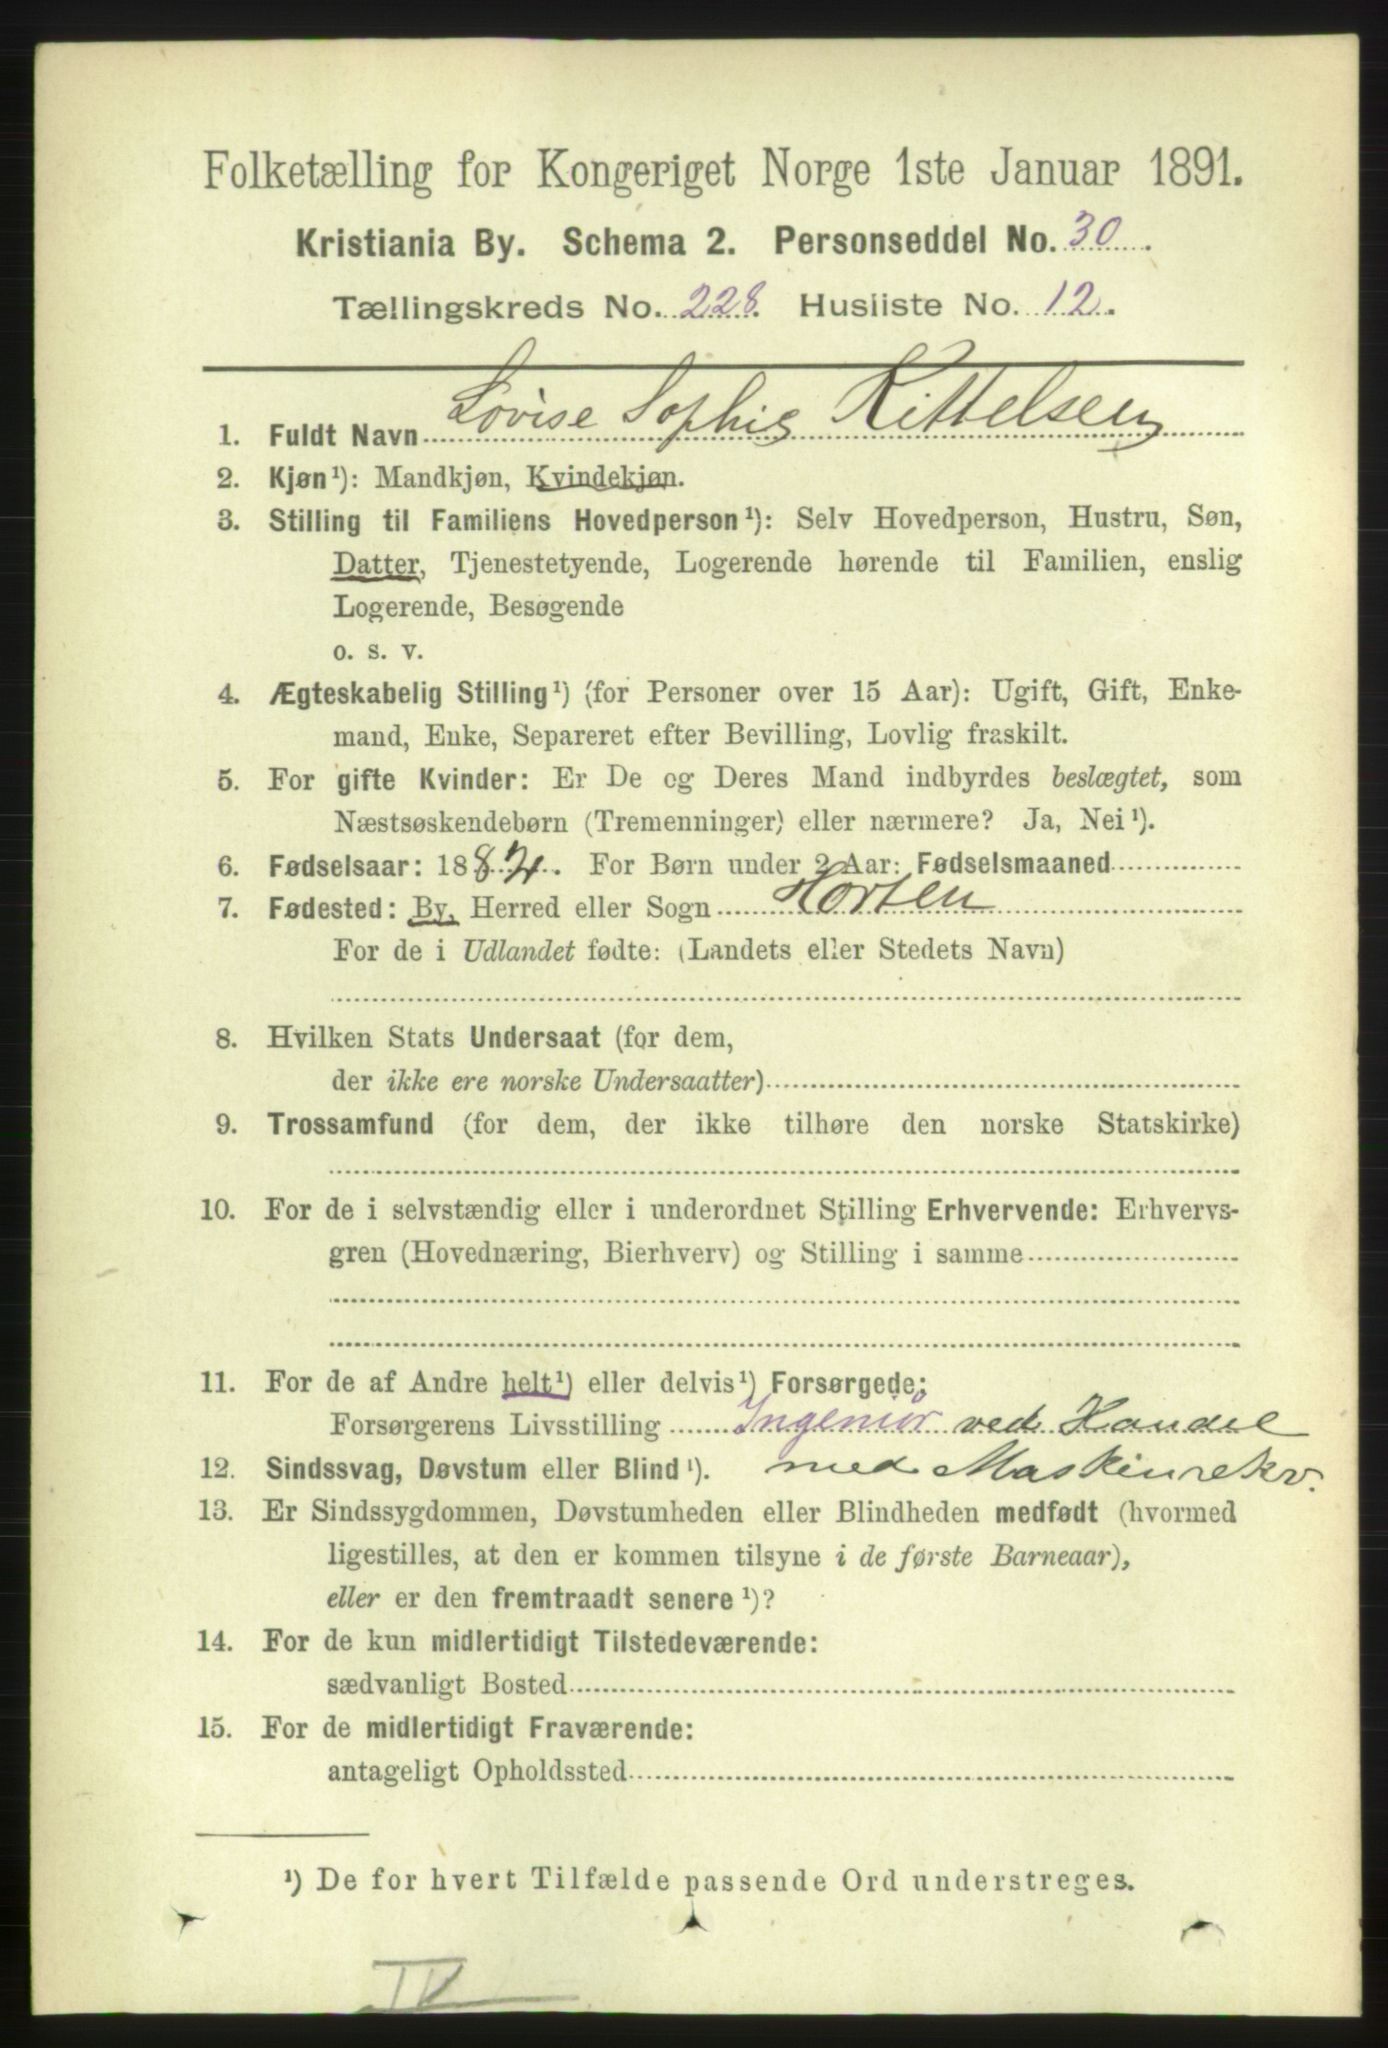 Folketælling for Kongeriget Norge 1ste Januar 1891.
Kristiania By. Schema 2. Personseddel No. 30.
Tællingskreds No. 228. Husliste No. 12.
1. Fuldt Navn Lovise Sophie Kittelsen
2. Kjøn¹): Mandkjøn, Kvindekjøn.
3. Stilling til Familiens Hovedperson¹): Selv Hovedperson, Hustru, Søn,
Datter, Tjenestetyende, Logerende hørende til Familien, enslig
Logerende, Besøgende
o. s. v.
4. Ægteskabelig Stilling¹) (for Personer over 15 Aar): Ugift, Gift, Enke-
mand, Enke, Separeret efter Bevilling, Lovlig fraskilt.
5. For gifte Kvinder: Er De og Deres Mand indbyrdes beslægtet, som
Næstsøskendebørn (Tremenninger) eller nærmere? Ja, Nei¹).
6. Fødselsaar: 188. For Børn under 2 Aar: Fødselsmaaned
7. Fødested: By, Herred eller Sogn Horten
For de i Udlandet fødte: (Landets eller Stedets Navn)
8. Hvilken Stats Undersaat (for dem,
der ikke ere norske Undersaatter)
9. Trossamfund (for dem, der ikke tilhøre den norske Statskirke)
10. For de i selvstændig eller i underordnet Stilling Erhvervende: Erhvervs-
gren (Hovednæring, Bierhverv) og Stilling i samme
11. For de af Andre helt¹) eller delvis¹) Forsørgede:
Forsørgerens Livsstilling Ingeniør ved Handel
12. Sindssvag, Døvstum eller Blind¹). med Maskinrekv.
13. Er Sindssygdommen, Døvstumheden eller Blindheden medfødt (hvormed
ligestilles, at den er kommen tilsyne i de første Barneaar),
eller er den fremtraadt senere¹)?
14. For de kun midlertidigt Tilstedeværende:
sædvanligt Bosted
15. For de midlertidigt Fraværende:
antageligt Opholdssted
¹) De for hvert Tilfælde passende Ord understreges.
IV